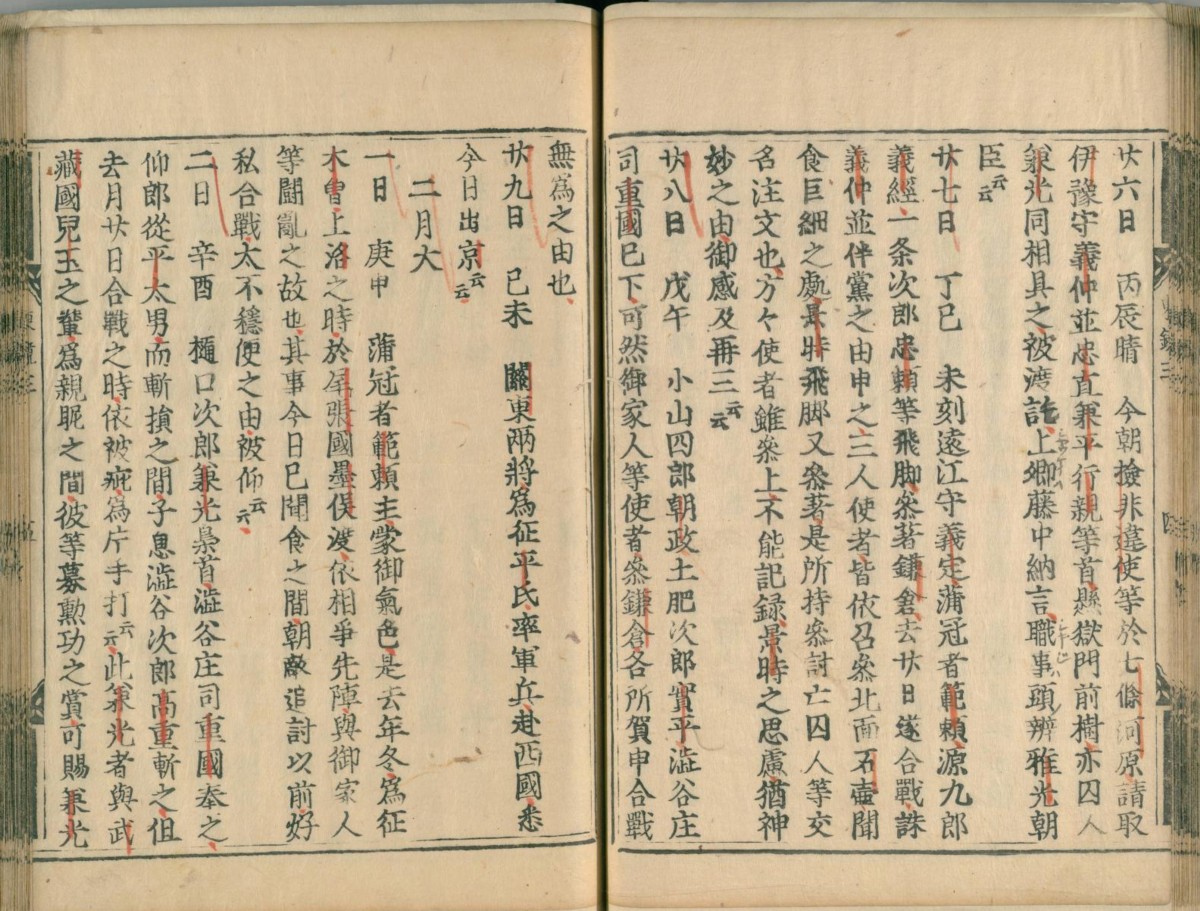 廿六日　丙辰晴　今朝撿非違使等於七條河原請取
伊豫守義仲並忠直兼平行親等首懸獄門前樹亦囚人
兼光同相具之被渡訖上卿藤中納言職事頭辨雅光朝
臣云云
廿七日　丁巳　未刻遠江守義定蒲冠者範頼源九郎
義經一条次郎忠頼等飛脚参著鎌倉去廿日遂合戰誅
義仲並伴黨之由申之三人使者皆依召参北面石壺聞
食巨細之處是時飛脚又参著是所持参討亡囚人等交
名注文也方々使者雖参上不能記録景時之思慮猶神
妙之由御感及再三云云
廿八日　戊午　小山四郎朝政土肥次郎實平澁谷庄
司重國已下可然御家人等使者参鎌倉各所賀申合戰
無為之由也
廿九日　己未　關東兩將為征平氏率軍兵赴西國悉
今日出京云云
二月大
一日　庚申　蒲冠者範頼主蒙御氣色是去年冬為征
木曾上洛之時於尾張國墨俣渡依相爭先陣與御家人
等鬪亂之故也其事今日已聞食之間朝敵追討以前好
私合戰太不穩便之由被仰云云
二日　辛酉　樋口次郎兼光梟首澁谷庄司重國奉之
仰郎從平太男而斬損之間子息澁谷次郎高重斬之但
去月廿日合戰之時依被疵為片手打云云此兼光者與武
藏國兒玉之輩為親昵之間彼等募勲功之賞可賜兼光